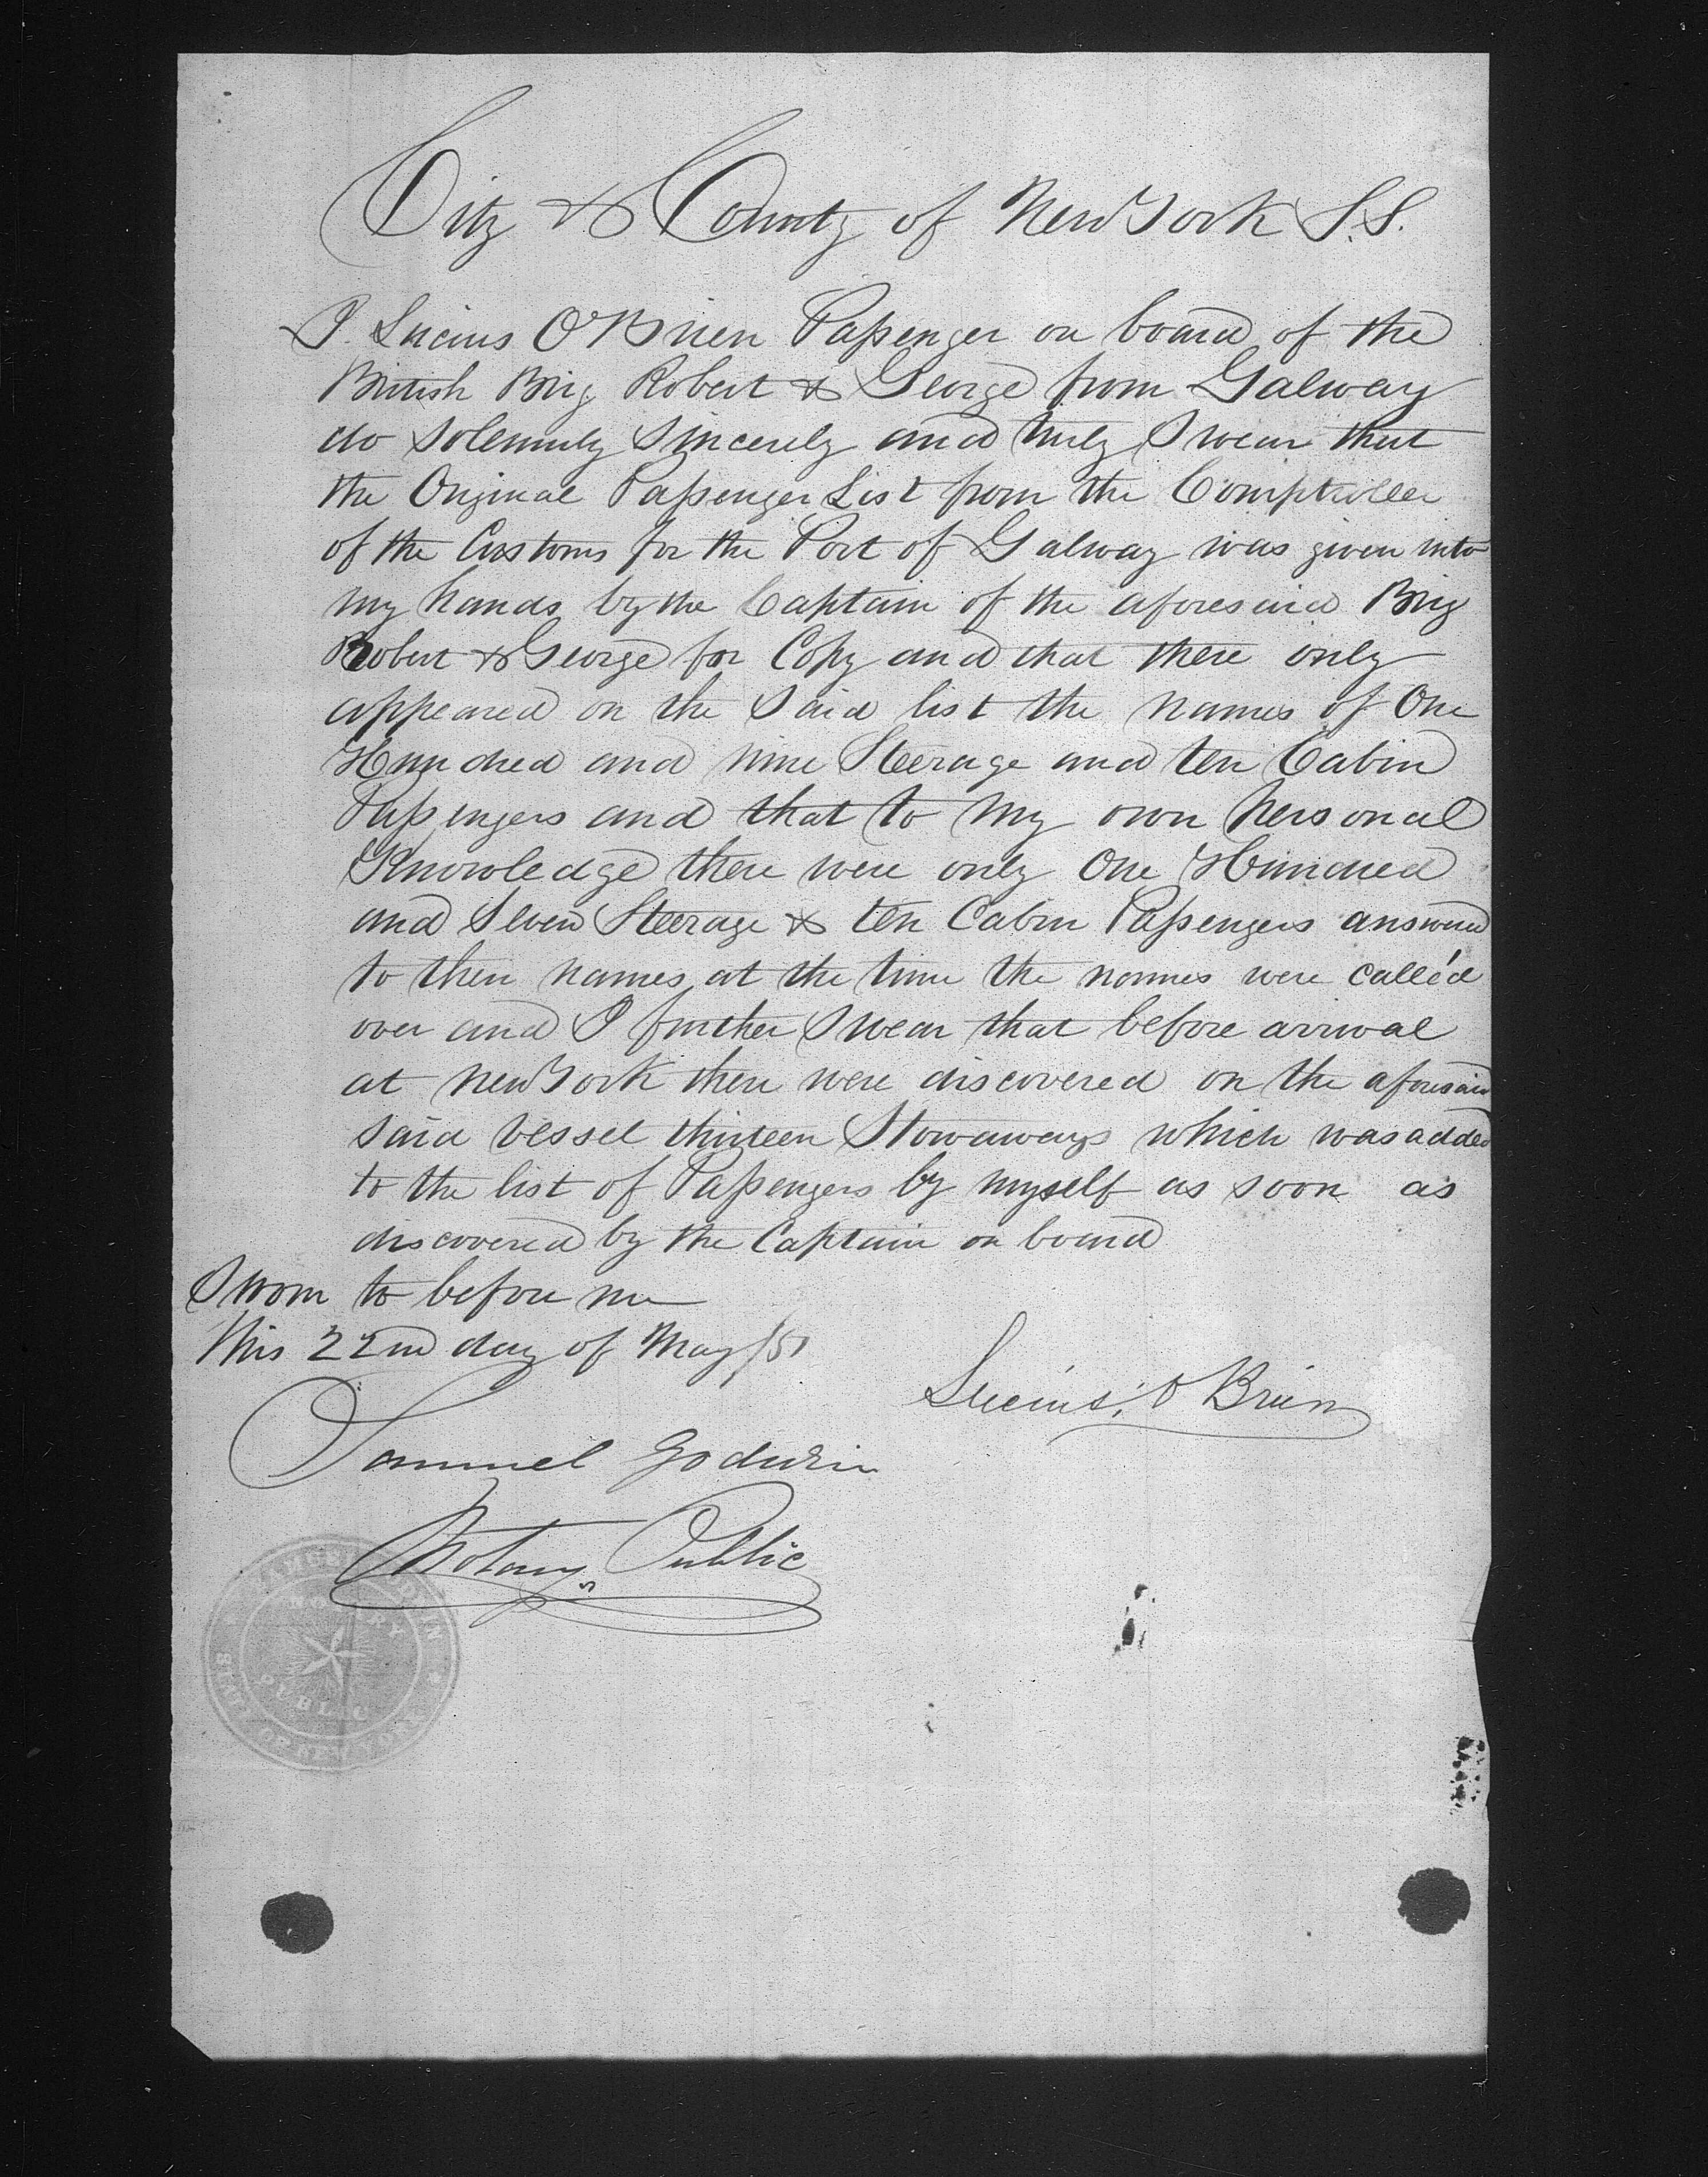 City & County of New York S.S.
I Lucius O'Brien Passenger on board of the
British Brig Robert & George from Galway
do solemnly sincerely and truly Swear that
the Original Passenger List from the Comptroller
of the Customs for the Port of Galway was given into
my hands by the Captain of the aforesaid Brig
Robert & George for Copy and that there only
appeared on the Said list the names of One
Hundred and nine Steerage and ten Cabin
Passengers and that to my own Personal
Knowledge there were only One Hundred
and Seven Steerage & ten Cabin Passengers answered
to their names at the time the names were call'd
over and I further Swear that before arrival
at New York there were discovered on the aforesaid
said vessel thirteen Stowaways which was added
to the list of Passengers by myself as soon as
discovered by the Captain on board
Sworn to before me
this 22nd day of May /51
Lucius O Brien
Samuel Godwin
Notary Public
NOTARY
PUBLIC
STATE OF NEW YORK